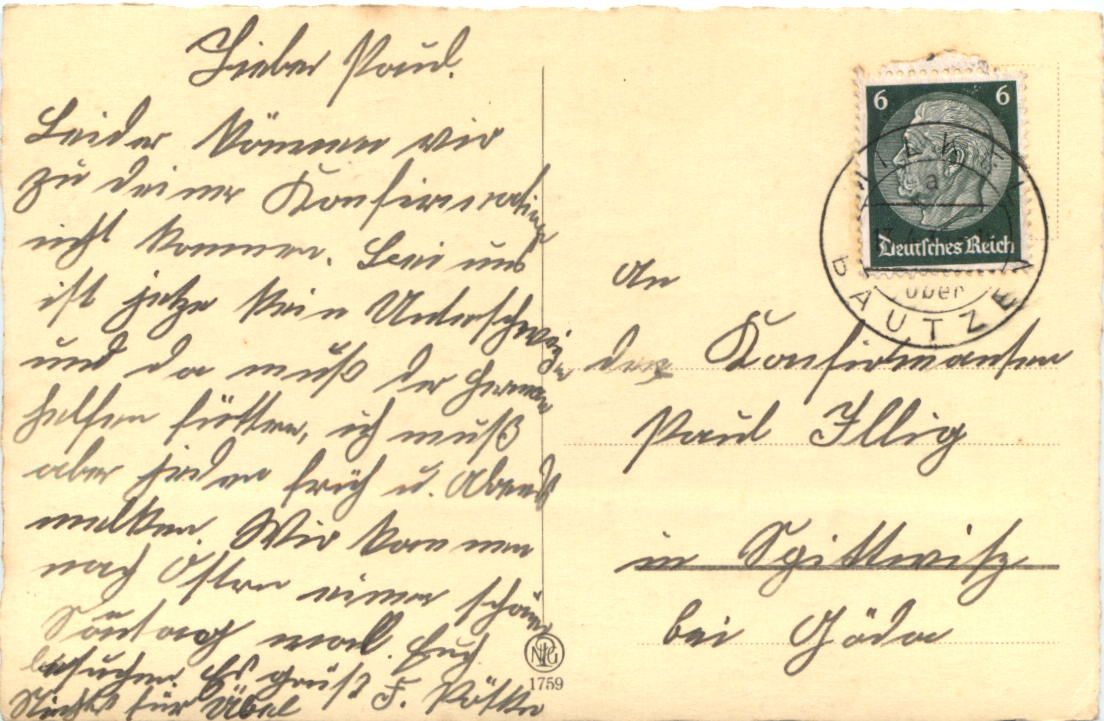 Lieber Paul.
Leider können wir
zu deiner Konfirmation
nicht kommen. Bei uns
ist jetzt kein Unterschweizer
und da muß der Herman
helfen füttern, ich muß
aber jeden früh u. Abend
melken. Wir kommen
nach Ostern einen schönen
Sontag mal. Euch
besuchen. Es grüßt F.
Nichts für Übel
6 6
Deutsches Reich
a
über
BAUTZEN
An
den Konfirmanten
Paul Illig
in Spittwitz
bei Göda
NPG
1759